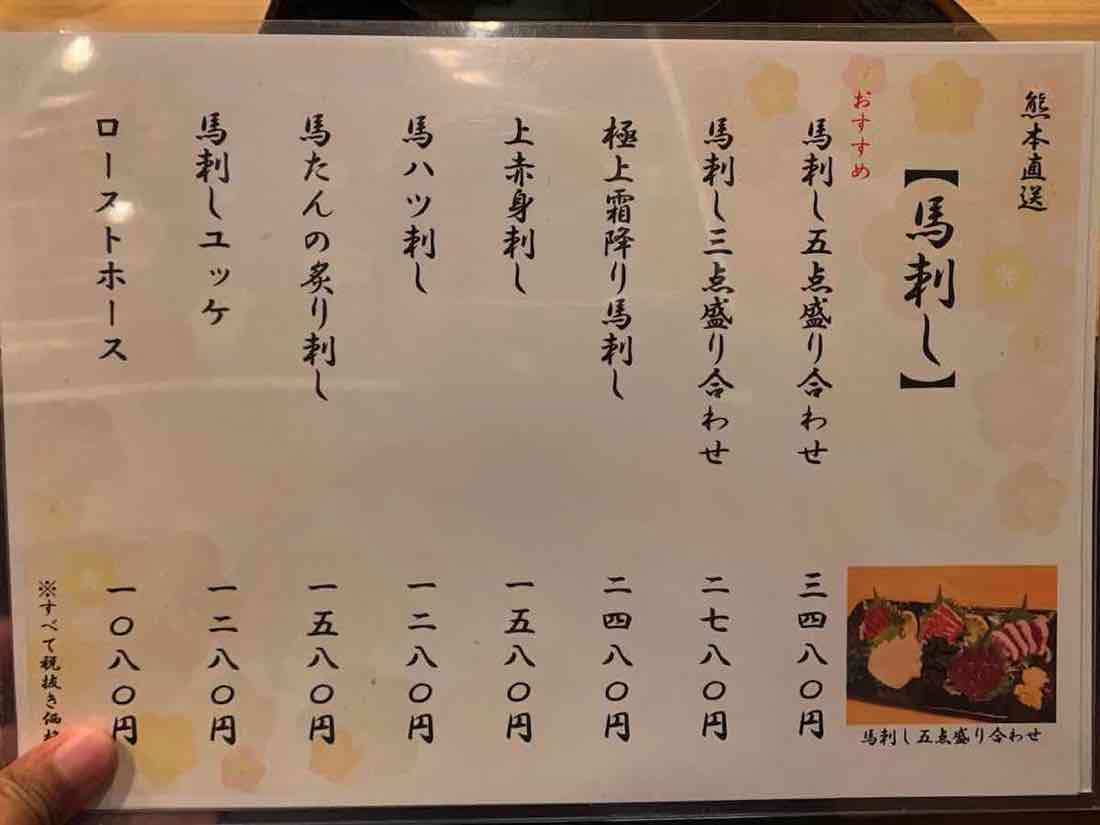 熊本直送
【馬刺し】
おすすめ
馬刺し五点盛り合わせ 三四八〇円
馬刺し三点盛り合わせ 二七八〇円
極上霜降り馬刺し 二四八〇円
上赤身刺し 一五八〇円
馬ハツ刺し 一二八〇円
馬たんの炙り刺し 一五八〇円
馬刺しユッケ 一二八〇円
ローストホース 一〇八〇円
※すべて税抜き価格
馬刺し五点盛り合わせ